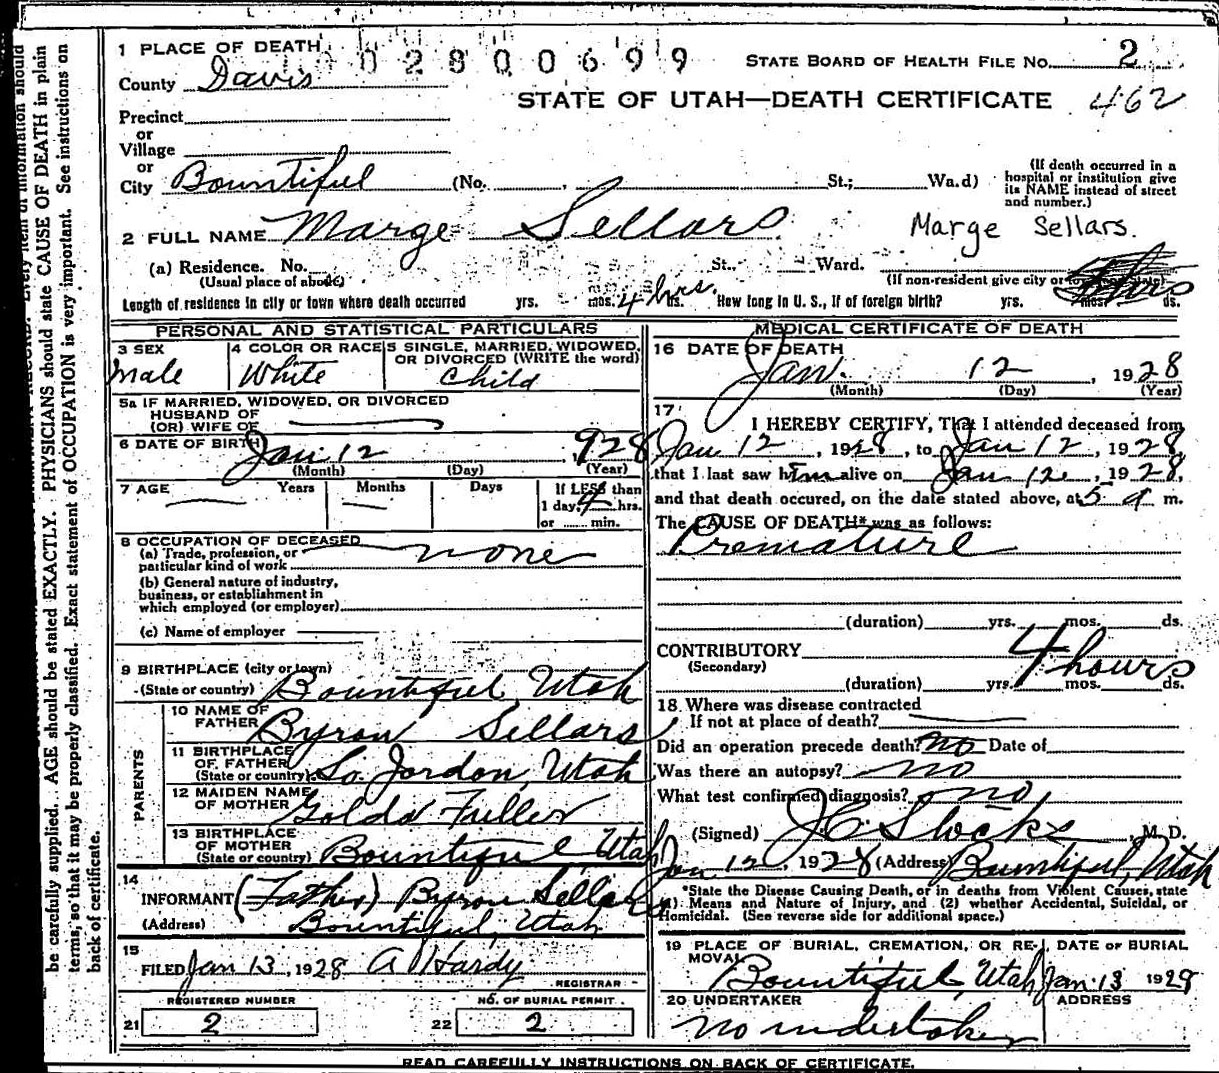 1 PLACE OF DEATH
002800699
STATE BOARD OF HEALTH FILE NO. 2
County Davis
STATE OF UTAH—DEATH CERTIFICATE 462
Precinct
or
Village
or
City Bountiful (No. , St.; Wa.d)
(If death occurred in a
hospital or institution give
its NAME instead of street
and number.)
2 FULL NAME Marge Sellars
Marge Sellars.
(a) Residence. No. St.. Ward.
(Usual place of abode)
(If non-resident give city or
Length of residence in city or town where death occurred yrs. mos. 4 hrs. How long in U. S., if of foreign birth? yrs. mos. ds.
PERSONAL AND STATISTICAL PARTICULARS
3 SEX
Male
4 COLOR OR RACE
White
5 SINGLE, MARRIED, WIDOWED,
OR DIVORCED (WRITE the word)
Child
5a IF MARRIED, WIDOWED, OR DIVORCED
HUSBAND OF
(OR) WIFE OF
6 DATE OF BIRTH Jan 12 1928
(Month) (Day) (Year)
7 AGE Years Months Days
If LESS than
1 day, 4 hrs.
or ...... min.
8 OCCUPATION OF DECEASED
(a) Trade, profession, or
particular kind of work none
(b) General nature of industry,
business, or establishment in
which employed (or employer)
(c) Name of employer
9 BIRTHPLACE (city or town)
(State or country) Bountiful, Utah
PARENTS
10 NAME OF
FATHER Byron Sellars
11 BIRTHPLACE
OF FATHER
(State or country) So. Jordon, Utah
12 MAIDEN NAME
OF MOTHER Golda Fuller
13 BIRTHPLACE
OF MOTHER
(State or country) Bountiful Utah
14
INFORMANT (Father) Byron Sellars
(Address) Bountiful, Utah
15
FILED Jan 13, 1928 A Hardy
REGISTRAR
REGISTERED NUMBER
21 2
NO. OF BURIAL PERMIT
22 2
MEDICAL CERTIFICATE OF DEATH
16 DATE OF DEATH
Jan. 12, 1928
(Month) (Day) (Year)
17
I HEREBY CERTIFY, That I attended deceased from
Jan 12, 1928, to Jan 12, 1928,
that I last saw him alive on Jan 12, 1928,
and that death occured, on the date stated above, at 5 a m.
The CAUSE OF DEATH* was as follows:
Premature
(duration) yrs. mos. ds.
CONTRIBUTORY
(Secondary)
4 hours
(duration) yrs. mos. ds.
18. Where was disease contracted
If not at place of death?
Did an operation precede death? no Date of
Was there an autopsy? no
What test confirmed diagnosis? no
(Signed) J.C. Stocks, M. D.
Jan 12, 1928 (Address) Bountiful, Utah
*State the Disease Causing Death, or in deaths from Violent Causes, state
(1) Means and Nature of Injury, and (2) whether Accidental, Suicidal, or
Homicidal. (See reverse side for additional space.)
19 PLACE OF BURIAL, CREMATION, OR RE-
MOVAL
Bountiful, Utah
DATE OF BURIAL
Jan. 13 1928
20 UNDERTAKER
no undertaker
ADDRESS
READ CAREFULLY INSTRUCTIONS ON BACK OF CERTIFICATE.
Every item of information should
be carefully supplied. AGE should be stated EXACTLY. PHYSICIANS should state CAUSE OF DEATH in plain
terms, so that it may be properly classified. Exact statement of OCCUPATION is very important. See instructions on
back of certificate.